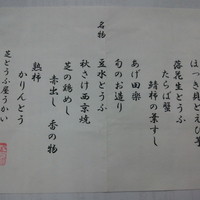 ほっき貝とえび箸
落花生とうふ
たらば蟹
鯖柿の箸すし
名物
あげ田楽
旬のお造り
豆水とうふ
秋さけ西京焼
芝の鶏めし
赤出し 香の物
熟柿
かりんとう
芝とうふ屋うかい